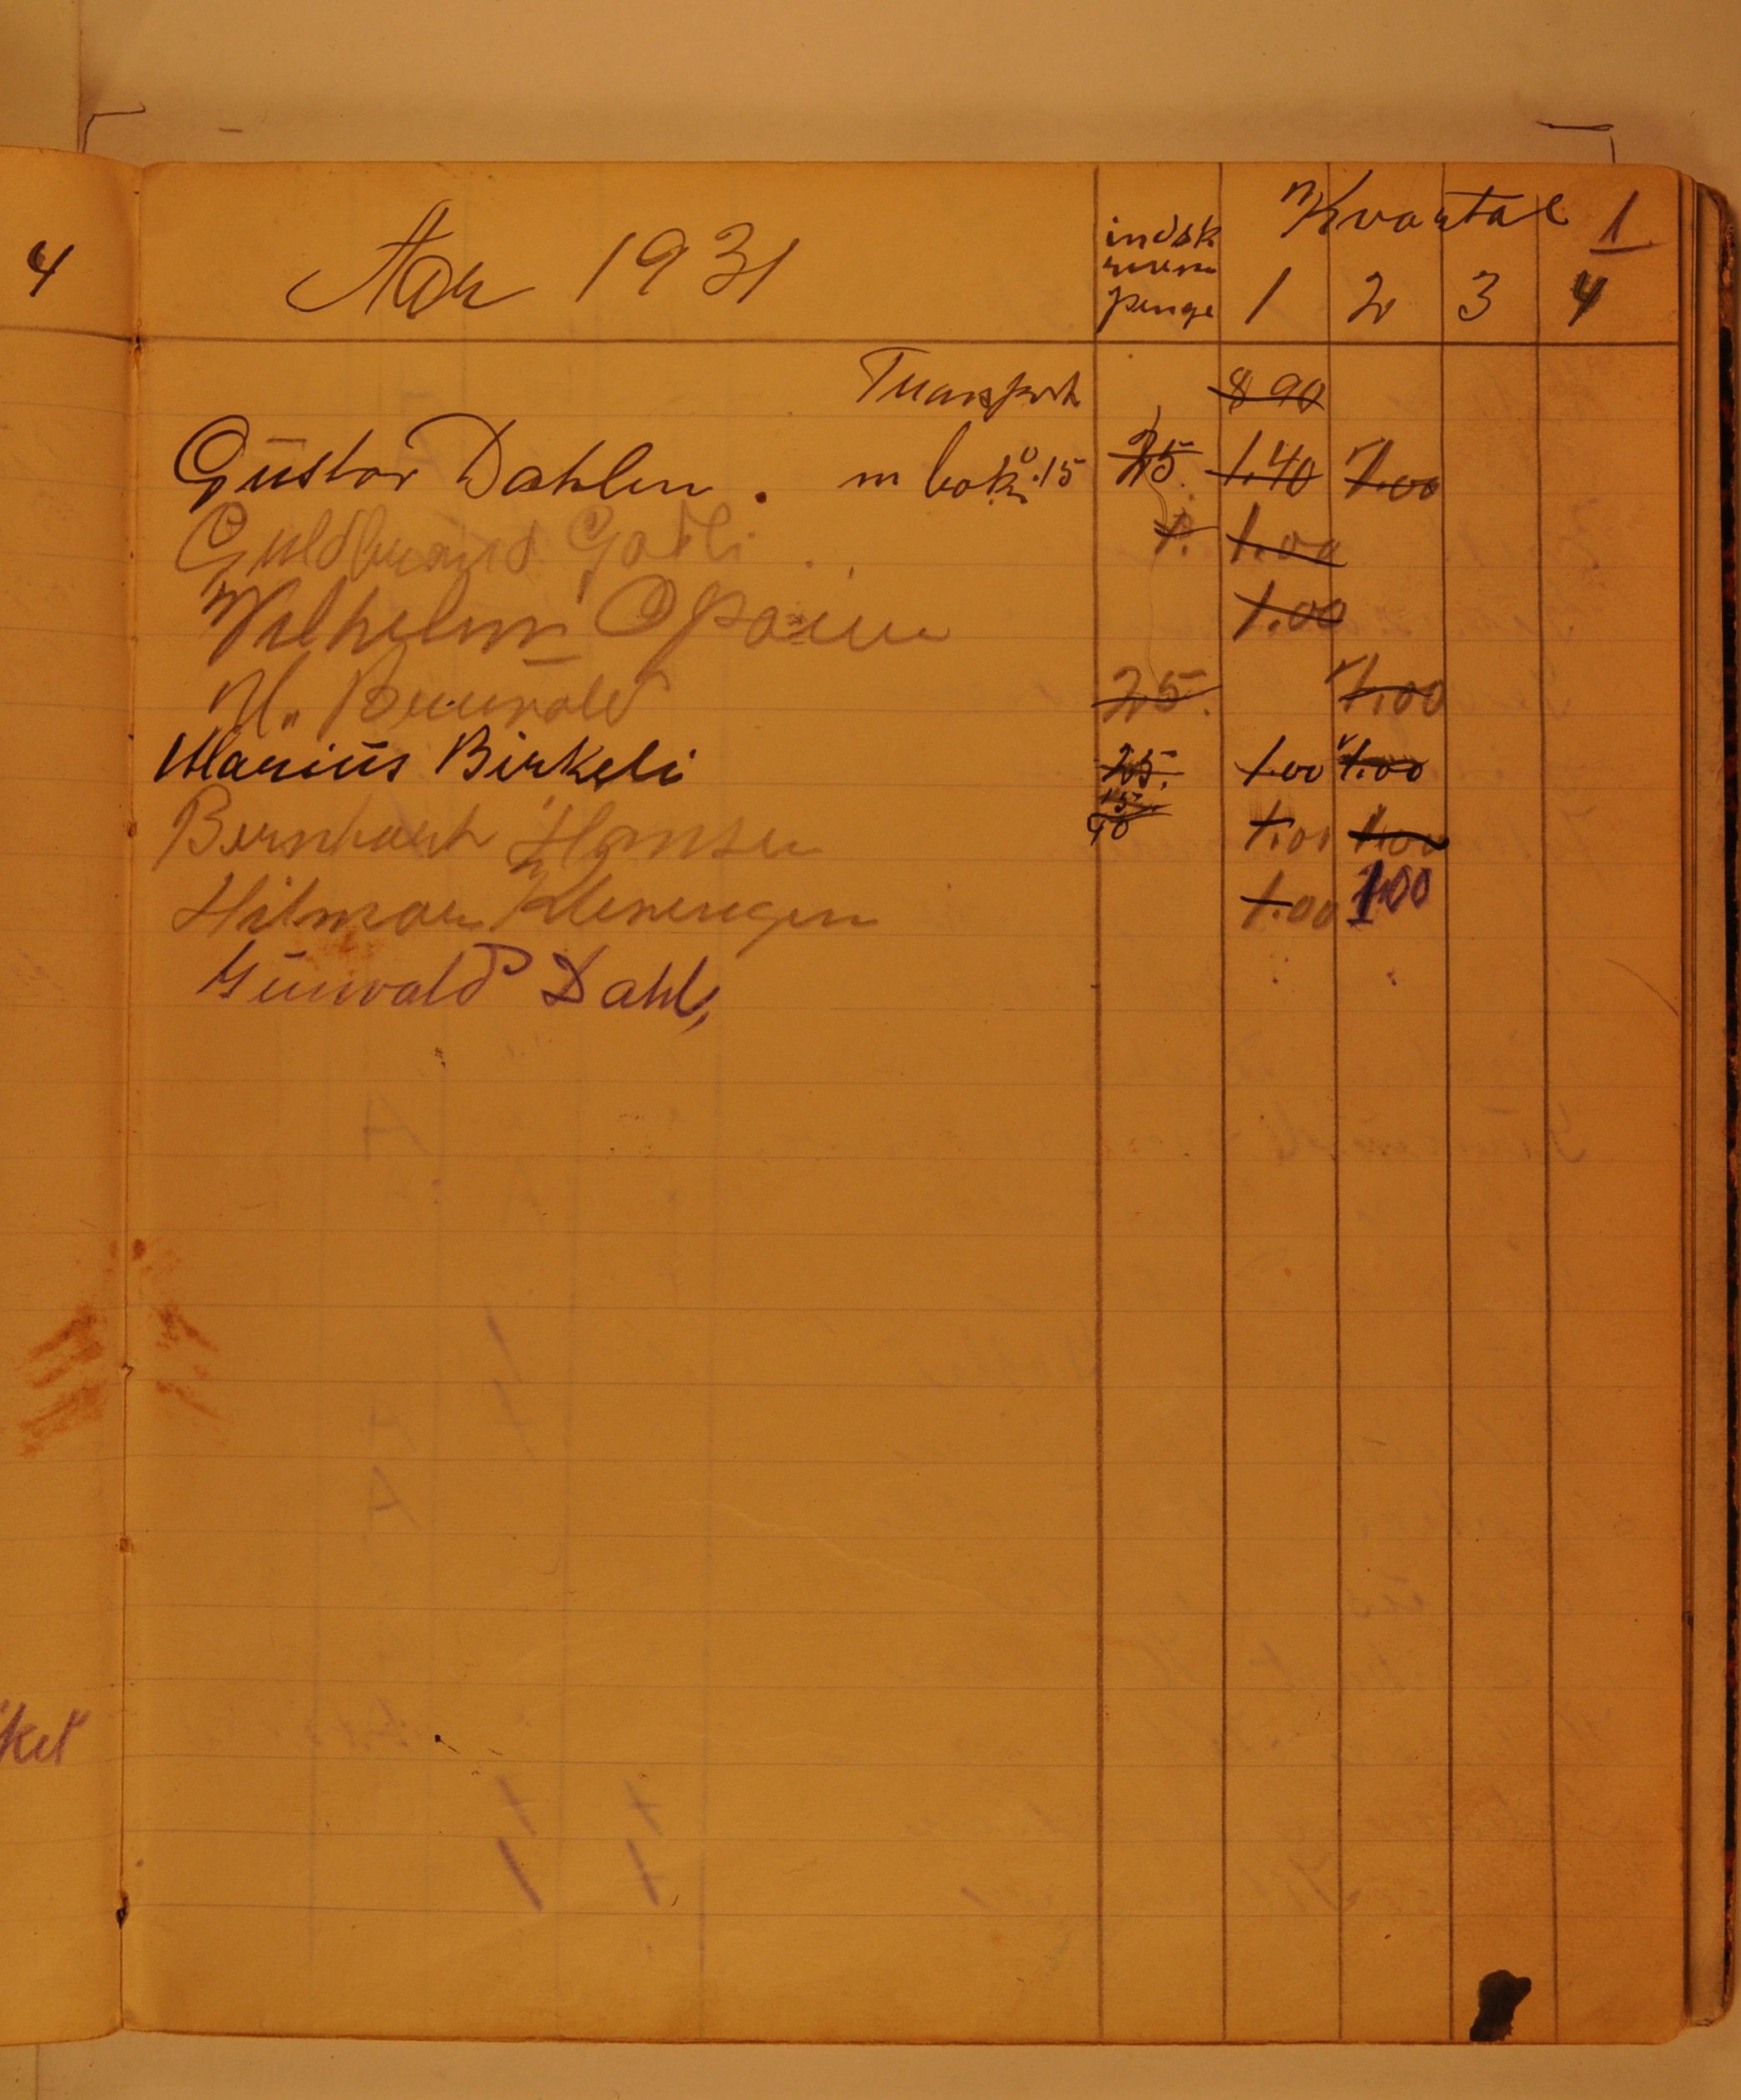 4
Aar 1931
indsk Kvartal 1
penge 1 2 3 4
Transport 8 90
Gustav Dahlen. m bok 0.15 25. 1.40 1.00
Guldbrand 1. 1.00
Vilhelm 1.00
25. 1.00
Marius Birkeli 25. 1.00 1.00
15
Bernhart Hansen 90 1.00 1.00
Hilmar Klevengen 1.00 1.00
Gunvald Dahl,
ket